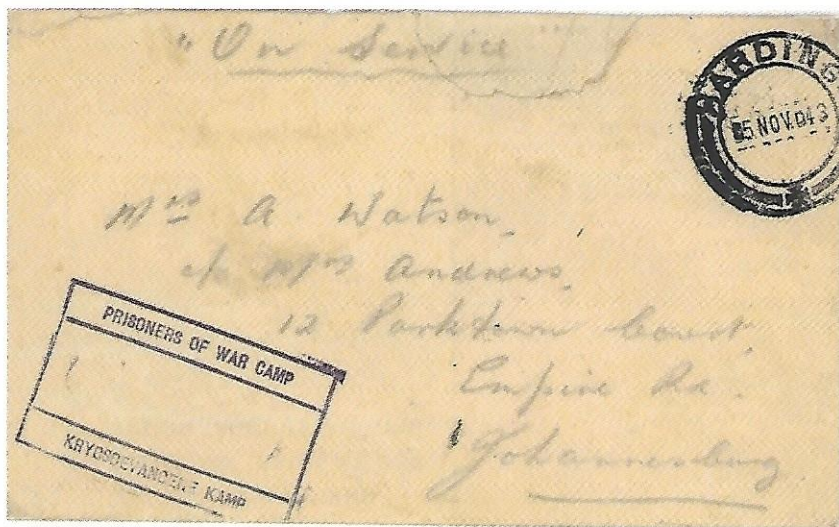 "On Service"
BARDING
5 NOV 043
Mrs A. Watson,
c/o Mrs Andrews,
12 Parktown Court,
Empire Rd.
Johannesburg
PRISONERS OF WAR CAMP
KRYGSGEVANGENE KAMP